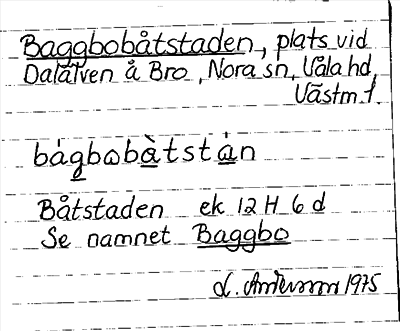 Baggbobåtstaden, plats vid
Dalälven å Bro, Nora sn, Våla hd,
Västm. l.
bágbobàtstán
Båtstaden ek 12 H 6 d
Se namnet Baggbo
1975